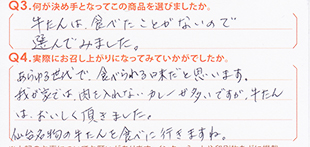 Q3.何が決め手となってこの商品を選びましたか。
牛たんは、食べたことがないので
選んでみました。
Q4.実際にお召し上がりになってみていかがでしたか。
あらゆる世代で、食べられる味だと思います。
我が家では、肉を入れないカレーが多いですが、牛たん
は、おいしく頂きました。
仙台名物の牛たんを食べに行きますね。